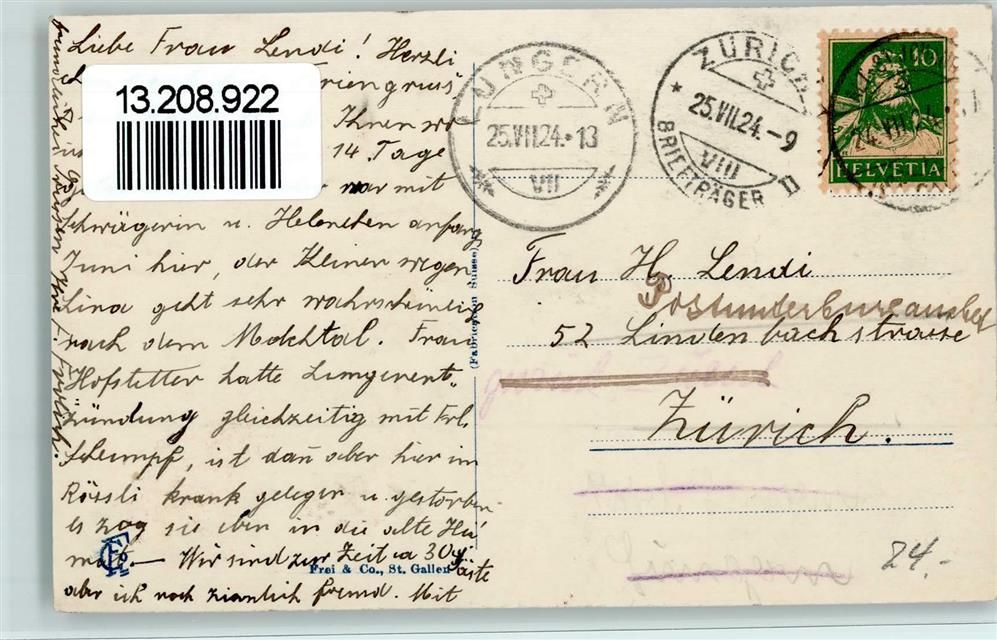 Liebe Frau Lendi! Herzli
13.208.922
Ihnen
14 Tage
war mit
Schwägerin u. Helenchen anfang
Juni hier, der Kleinen wegen
Lina geht sehr wahrscheinli
nach dem Melchtal. Frau
Hofstetter hatte Lungenent-
zündung gleichzeitig mit Frl.
Schlumpf, ist dañ aber hier im
Rössli krank gelegen u. gestorben
es zog sie eben in die alte Hei
mat. — Wir sind zur Zeit ca 30 Gäste
aber ich noch ziemlich fremd. Mit
Frei & Co., St. Gallen
(Fabrication Suisse)
LUNGERN
25.VII.24.-13
VII
ZÜRICH
25.VII.24.-9
VIII
BRIEFTRÄGER
10
HELVETIA
24.VII.24
Frau H. Lendi
52 Lindenbachstrasse
Zürich.
24.-